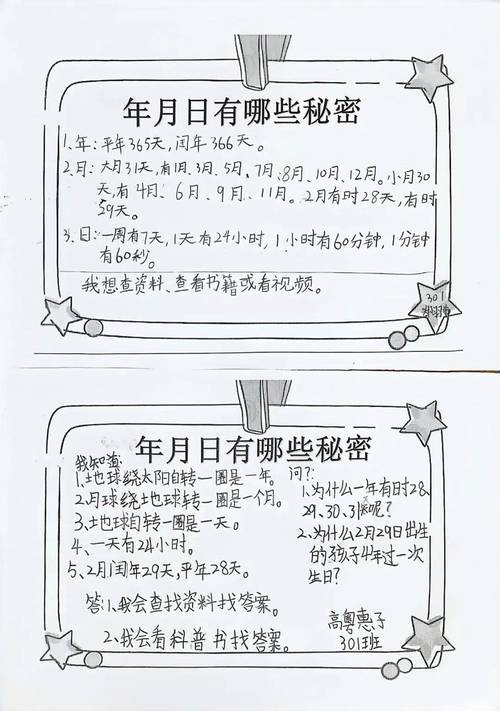 年月日有哪些秘密
1、年：平年365天，闰年366天。
2、月：大月31天，有1月、3月、5月、7月、8月、10月、12月。小月30
天，有4月、6月、9月、11月。2月有时28天，有时
29天。
3、日：一周有7天，1天有24小时，1小时有60分钟，1分钟
有60秒。
我想查资料、查看书籍或看视频。
301
年月日有哪些秘密
我知道：
1、土也球绕太阳自转一圈是一年。
2、月球绕土也球转一圈是一个月。
3、土也球自转一圈是一天。
4、一天有24小时。
5、2月闰年29天，平年28天。
问？：
1、为什么一年有时28、
29、30、31天呢？
2、为什么2月29日出生
的孩子4年过一次
生日？
答：1、我会查找资料找答案。
2、我会看科普书找答案。
高粤惠子
301班